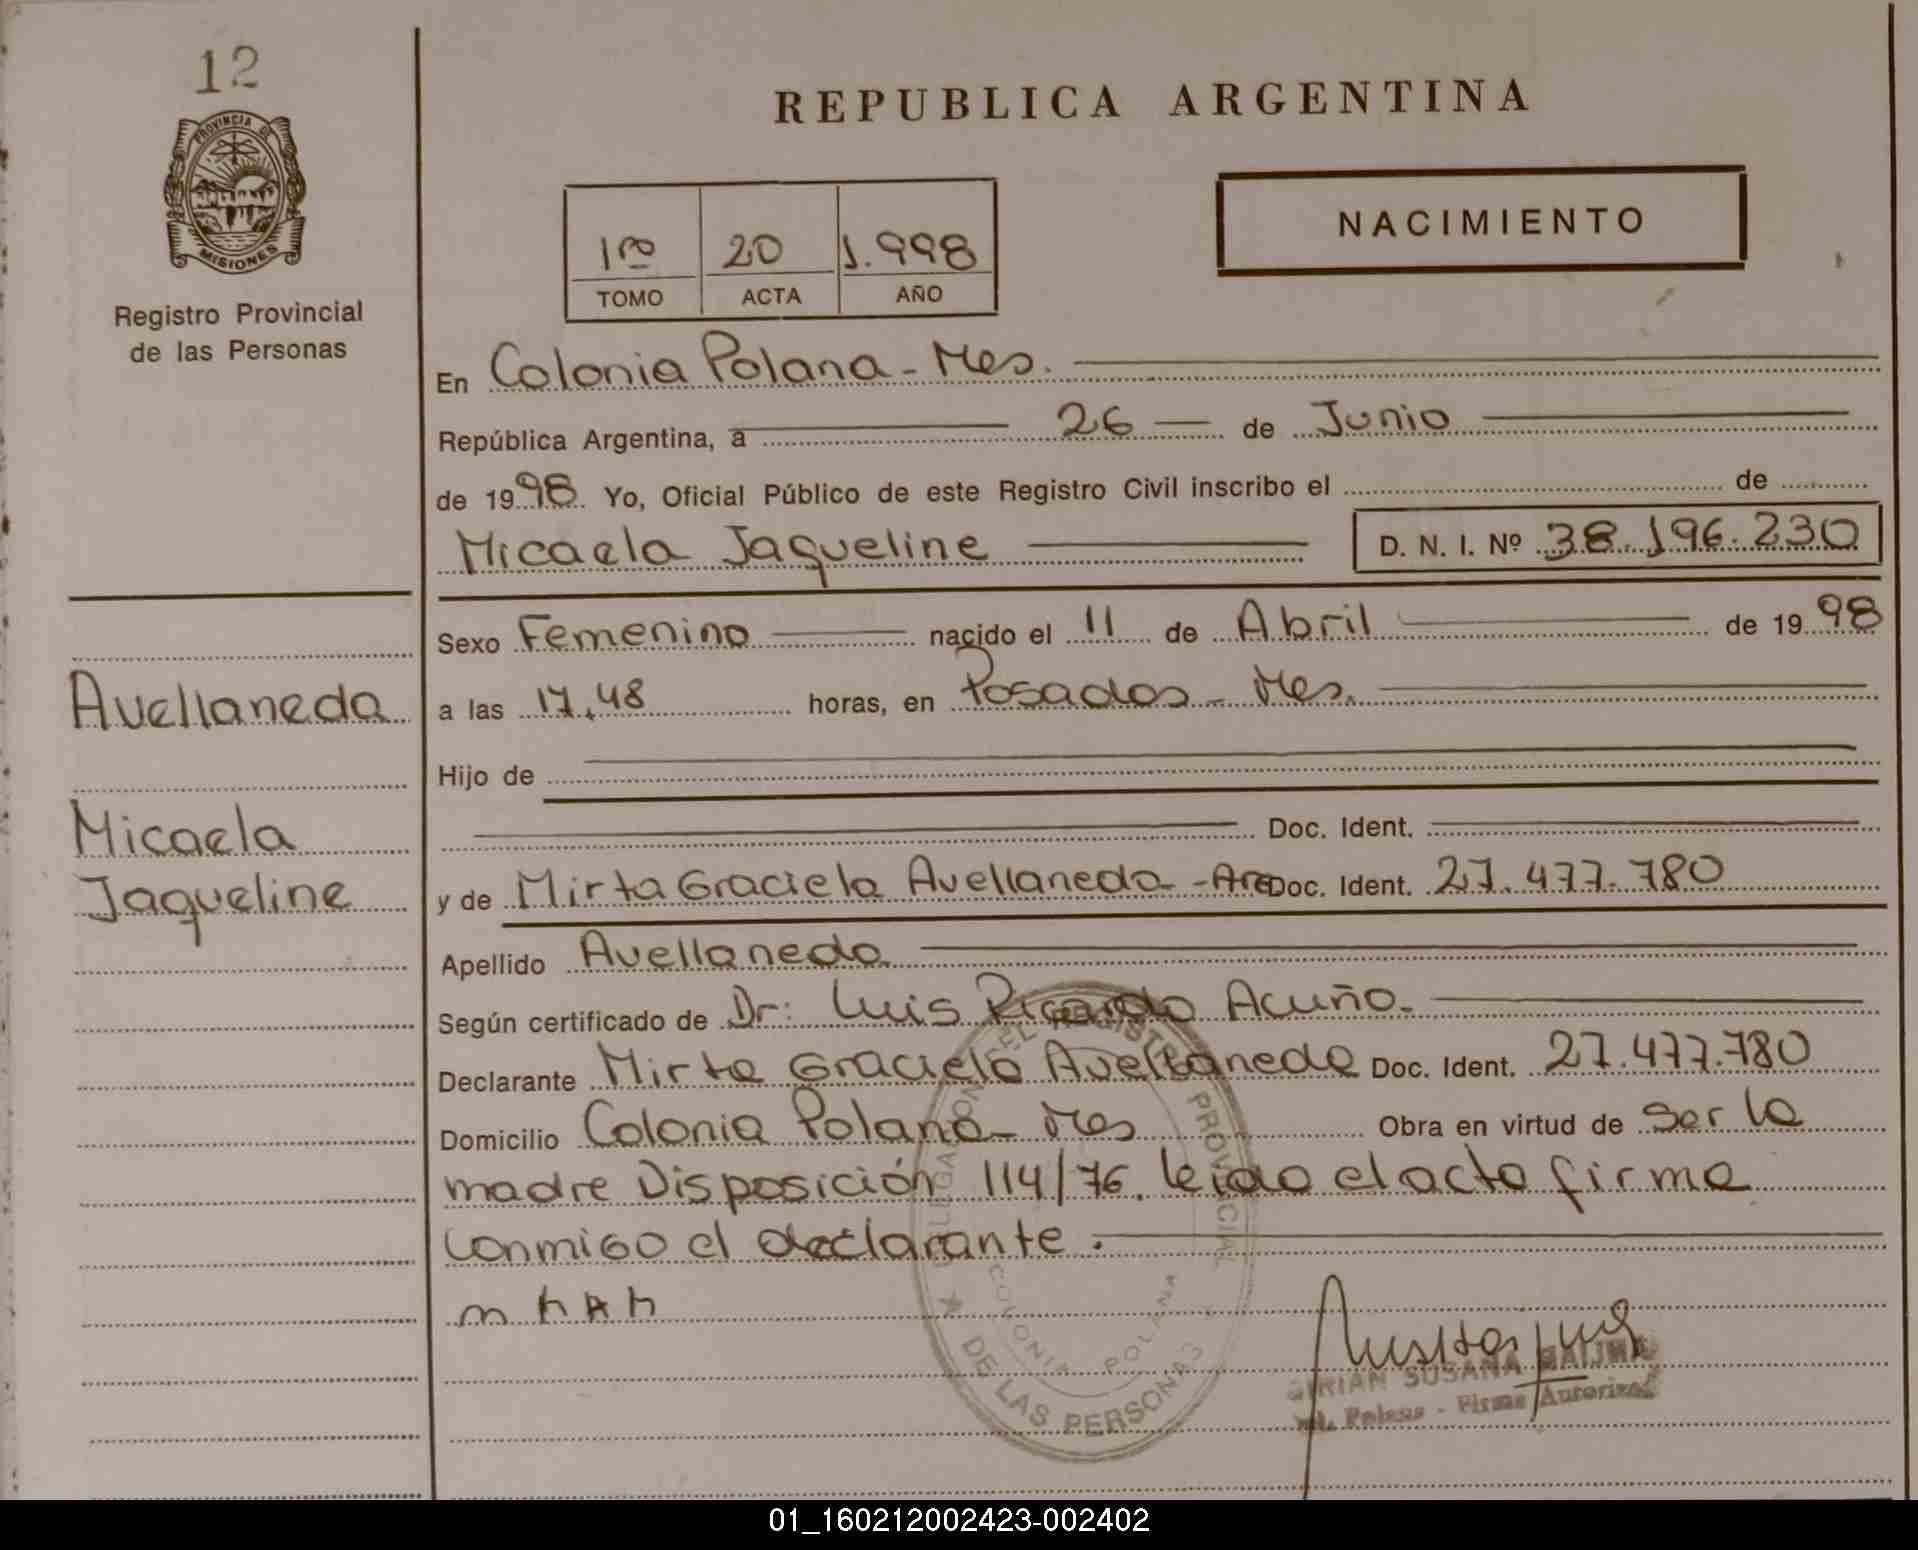 12
PROVINCIA DE
MISIONES
Registro Provincial
de las Personas
REPUBLICA ARGENTINA
1ro 20 1.998
TOMO ACTA AÑO
NACIMIENTO
En Colonia Polana - Mes.
República Argentina, a 26 de Junio
de 1998 Yo, Oficial Público de este Registro Civil inscribo el de
Micaela Jaqueline D. N. I. Nº 38.196.230
Sexo Femenino nacido el 11 de Abril de 1998
Avellaneda
a las 17,48 horas, en Posadas - Mes.
Hijo de
Doc. Ident.
Micaela
Jaqueline
y de Mirta Graciela Avellaneda - Arg Doc. Ident. 27.477.780
Apellido Avellaneda
Según certificado de Dr: Luis Ricardo Acuña.
Declarante Mirta Graciela Avellaneda Doc. Ident. 27.477.780
Domicilio Colonia Polana - Mes Obra en virtud de ser la
madre Disposición 114/76. leido el acta firma
conmigo el declarante.
DELEGACION DEL REGISTRO PROVINCIAL
DE LAS PERSONAS
COLONIA POLANA
SUSANA
Polana - Firma Autorizada
01_160212002423-002402